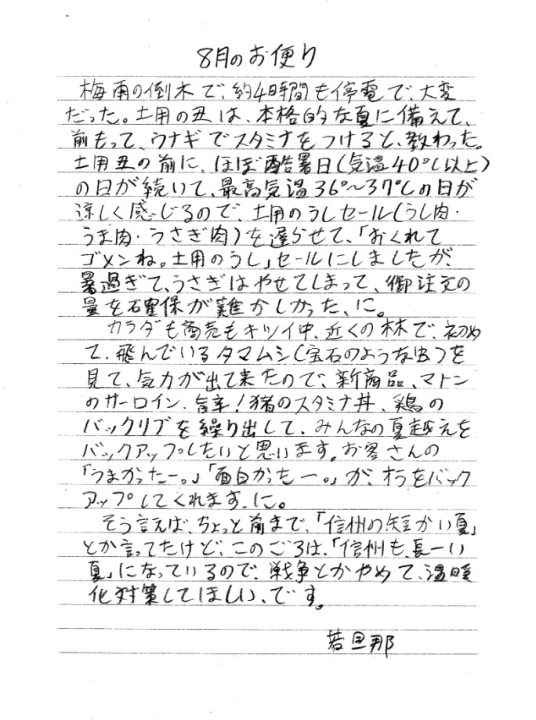 8月のお便り
梅雨の倒木で、約4時間も停電で、大変
だった。土用の丑は、本格的な夏に備えて、
前もって、ウナギでスタミナをつけると、教わった。
土用丑の前に、ほぼ酷暑日(気温40℃以上)
の日が続いて、最高気温36°〜37℃の日が
涼しく感じるので、土用のうしセール(うし肉・
うま肉・うさぎ肉)を遅らせて、「おくれて
ゴメンね。土用のうし」セールにしましたが
暑過ぎて、うさぎはやせてしまって、御注文の
量を確保が難かしかった、に。
カラダも商売もキツイ中、近くの林で、初め
て、飛んでいるタマムシ(宝石のような虫)を
見て、気力が出て来たので、新商品、マトン
のサーロイン、旨辛!猪のスタミナ丼、鶏の
バックリブを繰り出して、みんなの夏越えを
バックアップしたいと思います。お客さんの
「うまかったー。」「面白かったー。」が、オラをバック
アップしてくれます、に。
そう言えば、ちょっと前まで、「信州の短かい夏」
とか言ってたけど、このごろは、「信州も、長ーい
夏」になっているので、戦争とかやめて、温暖
化対策してほしい、です。
若旦那